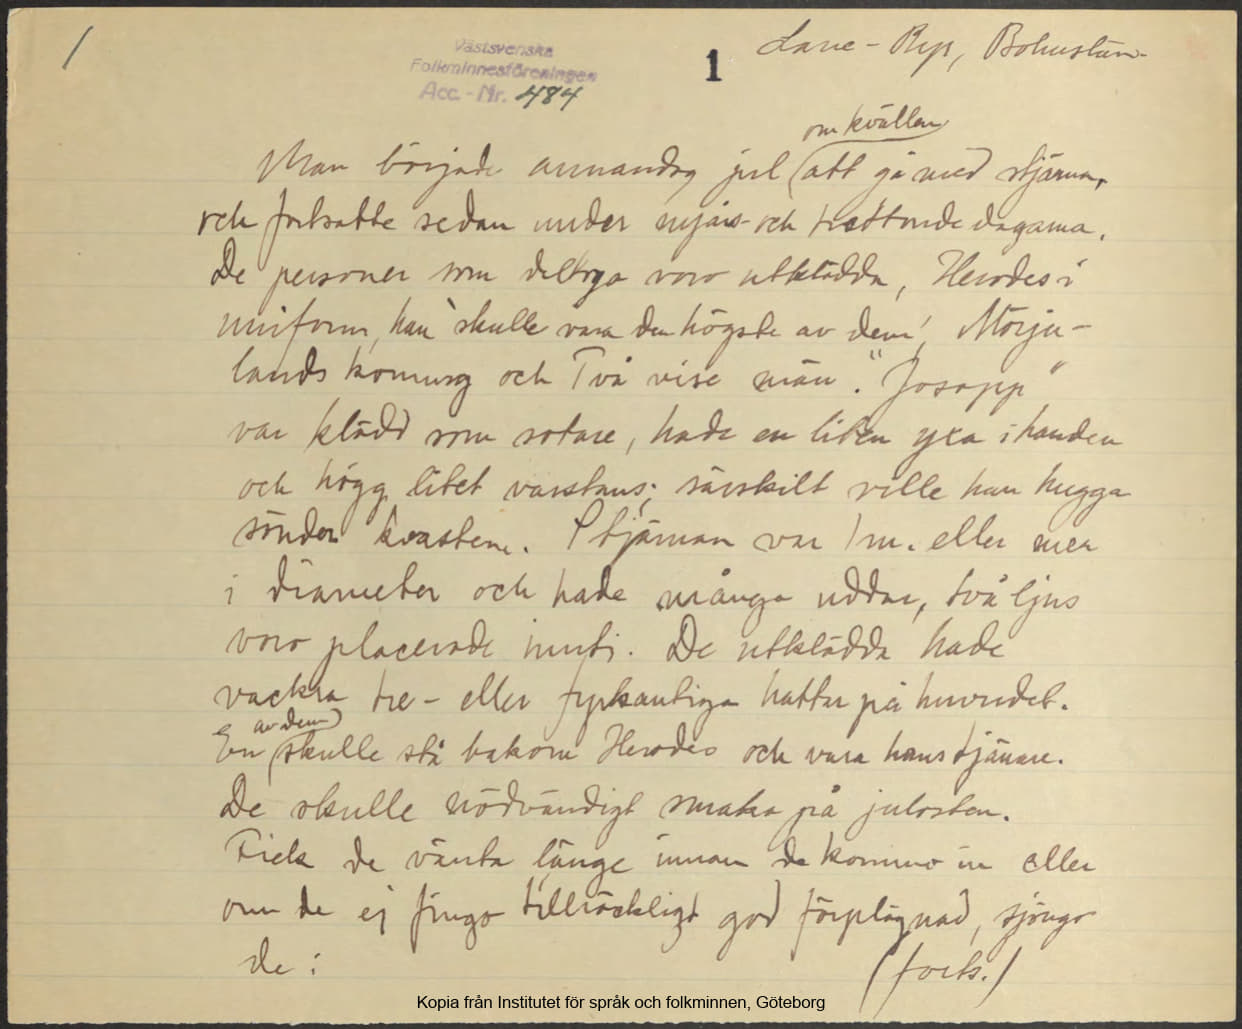 /
Västsvenska
Folkminnesföreningen
Acc.-Nr. 484
1
Lane-Ryr, Bohuslän
om kvällen
Man började annandag jul att gå med stjärna,
och fortsatte sedan under nyårs- och trettondedagarna.
De personer som deltogo voro utklädda, Herodes i
uniform, han "skulle vara den högste av dem", Morja-
lands konung och Två vise män. "Josepp"
var klädd som sotare, hade en liten yxa i handen
och högg litet varstans; särskilt ville han hugga
sönder kvastene. Stjärnan var 1 m. eller mer
i diameter och hade många uddar, två ljus
voro placerade inuti. De utklädda hade
vackra tre- eller fyrkantiga hattar på huvudet.
av dem
En skulle stå bakom Herodes och vara hans tjänare.
De skulle nödvändigt smaka på julosten.
Fick de vänta länge innan de kommo in eller
om de ej fingo tillräckligt god förplägnad, sjöngo
de:
(forts.)
Kopia från Institutet för språk och folkminnen, Göteborg